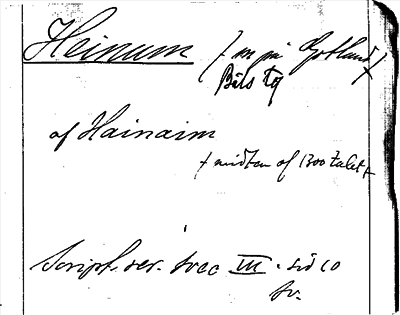 Heinum (sn på Gotland)
Bäls tg
af Hainaim
(midten af 1300 talet)
Script. rer. svec III. sid 10
sv.